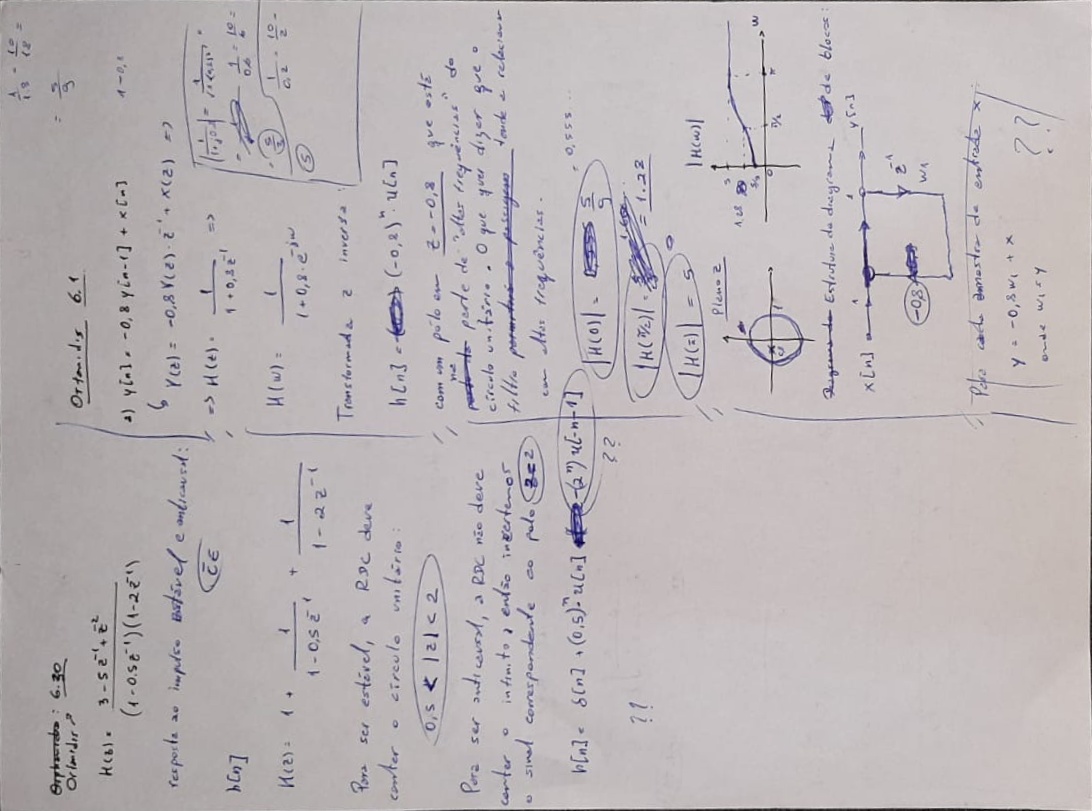 Orfanidis: 6.20
H(z) = 3 - 5z⁻¹ + z⁻² / (1 - 0.5z⁻¹)(1 - 2z⁻¹)
resposta ao impulso estável e anticausal:
h[n]
H(z) = 1 + 1 / 1 - 0,5z⁻¹ + 1 / 1 - 2z⁻¹
Para ser estável, a RDC deve
conter o círculo unitário:
0,5 < |z| < 2
Para ser anticausal, a RDC não deve
conter o infinito, então invertemos
o sinal correspondente ao polo z=2
h[n] = δ[n] + (0,5)ⁿ·u[n] -(2ⁿ)u[-n-1]
??
??
Orfanidis 6.1
a) y[n] = -0,8y[n-1] + x[n]
Y(z) = -0,8Y(z)·z⁻¹ + X(z) =>
=> H(z) = 1 / 1 + 0,8z⁻¹ =>
H(w) = 1 / 1 + 0,8·e⁻ʲʷ
Transformada z inversa:
h[n] = (-0,8)ⁿ·u[n]
com um pólo em z=-0,8 que está
na parte de "altas frequências" do
círculo unitário. O que quer dizer que o
filtro
com altas frequências.
|H(0)| = 5/9 = 0,555...
|H(π/2)| = 1.28
|H(π)| = 5
Plano z
|H(w)|
5
1.28
5/9
0
π/2
π
w
Estrutura do diagrama de blocos:
x[n]
y[n]
1
1
-0,8
z⁻¹
w1
Para cada amostra de entrada x
y = -0,8w1 + x
onde w1 = y
??
1/1.8 = 10/18 =
= 5/9
1-0,8
1/0.2 = 10/2 =
5